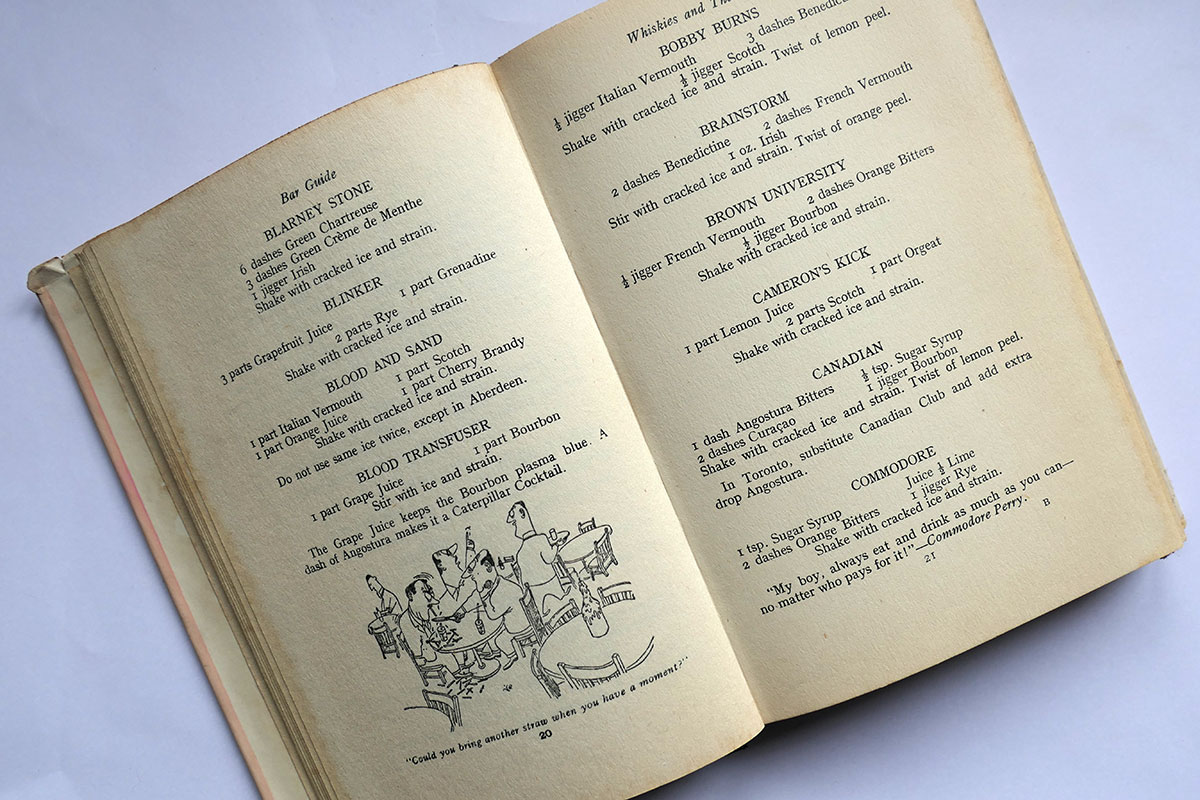 Bar Guide
BLARNEY STONE
6 dashes Green Chartreuse
3 dashes Green Crème de Menthe
1 jigger Irish
Shake with cracked ice and strain.
BLINKER
3 parts Grapefruit Juice 1 part Grenadine
2 parts Rye
Shake with cracked ice and strain.
BLOOD AND SAND
1 part Italian Vermouth 1 part Scotch
1 part Orange Juice 1 part Cherry Brandy
Shake with cracked ice and strain.
Do not use same ice twice, except in Aberdeen.
BLOOD TRANSFUSER
1 part Grape Juice 1 part Bourbon
Stir with ice and strain.
The Grape Juice keeps the Bourbon plasma blue. A
dash of Angostura makes it a Caterpillar Cocktail.
"Could you bring another straw when you have a moment?"
20
Whiskies and
BOBBY BURNS
½ jigger Italian Vermouth 3 dashes Benedictine
½ jigger Scotch
Shake with cracked ice and strain. Twist of lemon peel.
BRAINSTORM
2 dashes Benedictine 2 dashes French Vermouth
1 oz. Irish
Stir with cracked ice and strain. Twist of orange peel.
BROWN UNIVERSITY
½ jigger French Vermouth 2 dashes Orange Bitters
½ jigger Bourbon
Shake with cracked ice and strain.
CAMERON'S KICK
1 part Lemon Juice 1 part Orgeat
2 parts Scotch
Shake with cracked ice and strain.
CANADIAN
1 dash Angostura Bitters ½ tsp. Sugar Syrup
2 dashes Curaçao 1 jigger Bourbon
Shake with cracked ice and strain. Twist of lemon peel.
In Toronto, substitute Canadian Club and add extra
drop Angostura.
COMMODORE
1 tsp. Sugar Syrup Juice ½ Lime
2 dashes Orange Bitters 1 jigger Rye
Shake with cracked ice and strain.
"My boy, always eat and drink as much as you can—
no matter who pays for it!"—Commodore Perry.
21 B